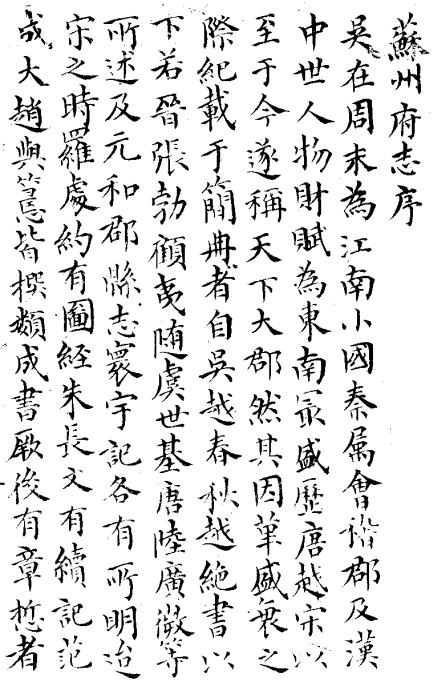 蘇州府志序
吳在周末為江南小國秦屬會稽郡及漢
中世人物財賦為東南冣盛歷唐越宋以
至于今遂稱天下大郡然其因革盛衰之
際紀載于簡冊者自吳越春秋越絕書以
下若晉張勃顧夷隨虞世基唐陸廣微等
所述及元和郡縣志寰宇記各有所明迨
宋之時羅處約有圖經朱長文有續記范
成大趙與𥲅皆撰類成書厥後有章悊者